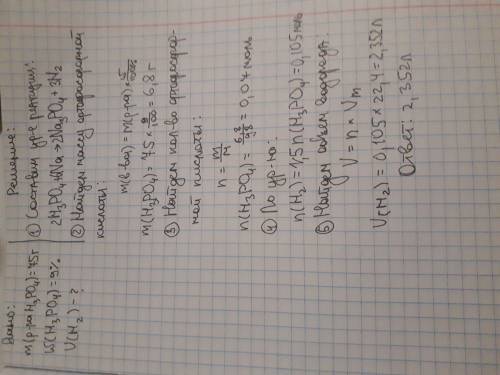 Дано:
m(р-ра H₃PO₄)=75г
W(H₃PO₄)=9%
V(H₂) - ?
Решение:
① Составим ур-е реакции:
2H₃PO₄+6Na→2Na₃PO₄+3H₂
② Найдем массу фосфорной
кислоты:
m(в-ва) = m(р-ра) × W/100%
m(H₃PO₄) = 75 × 9/100 = 6,8 г
③ Найдем кол-во фосфор-
ной кислоты:
n = m/M
n(H₃PO₄) = 6,8/98 = 0,07 моль
④ По ур-ю:
n(H₂) = 1,5 n(H₃PO₄) = 0,105 моль
⑤ Найдем объем водорода:
V = n × Vm
V(H₂) = 0,105 × 22,4 = 2,352л
Ответ: 2,352л